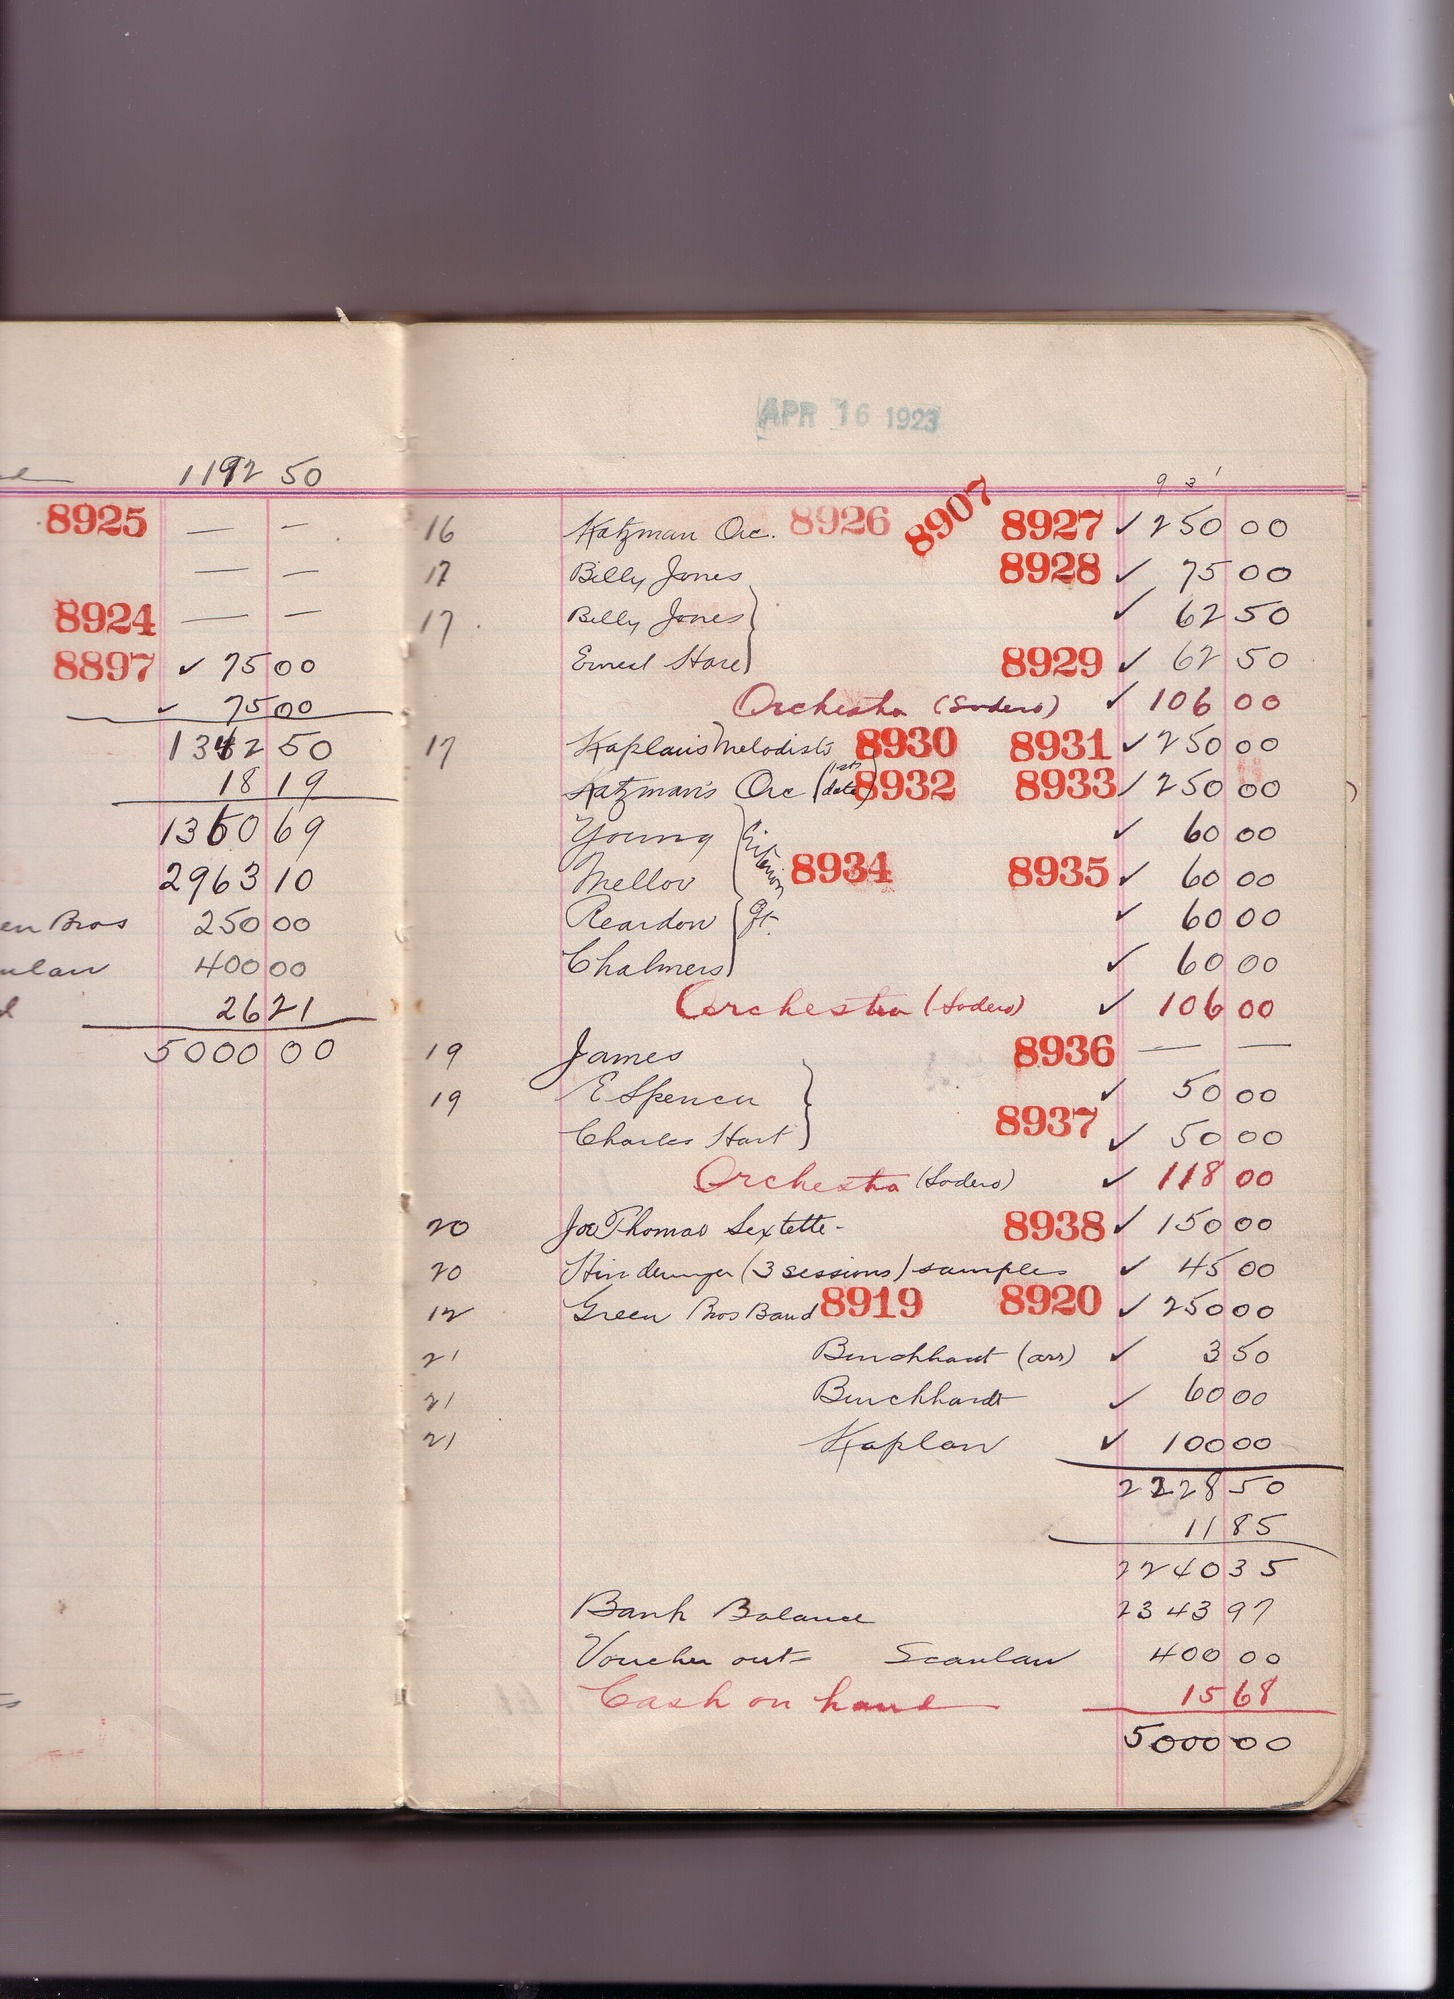 1192 50
8925 — —
— —
8924 — —
8897 ✓ 75 00
✓ 75 00
1342 50
18 19
1360 69
2963 10
en Bros 250 00
400 00
26 21
5000 00
APR 16 1923
16 Katzman Orc. 8926 8907 8927 ✓ 250 00
17 Billy Jones 8928 ✓ 75 00
17 Billy Jones ✓ 62 50
Ernest Hare 8929 ✓ 62 50
Orchestra (Sodero) ✓ 106 00
17 Kaplan's Melodists 8930 8931 ✓ 250 00
Katzman's Orc (1st date) 8932 8933 ✓ 250 00
Young ✓ 60 00
Mellor Criterion Qt. 8934 8935 ✓ 60 00
Reardon ✓ 60 00
Chalmers ✓ 60 00
Orchestra (Sodero) ✓ 106 00
19 James 8936 — —
19 E Spencer ✓ 50 00
Charles Hart 8937 ✓ 50 00
Orchestra (Sodero) ✓ 118 00
20 Joe Thomas Sextette - 8938 ✓ 150 00
20 (3 sessions) samples ✓ 45 00
12 Green Bros Band 8919 8920 ✓ 250 00
21 Burchhardt (arr) ✓ 3 50
21 Burchhardt ✓ 60 00
21 Kaplan ✓ 100 00
2228 50
11 85
2240 35
Bank Balance 2343 97
Voucher out= Scanlan 400 00
Cash on hand 15 68
5000 00